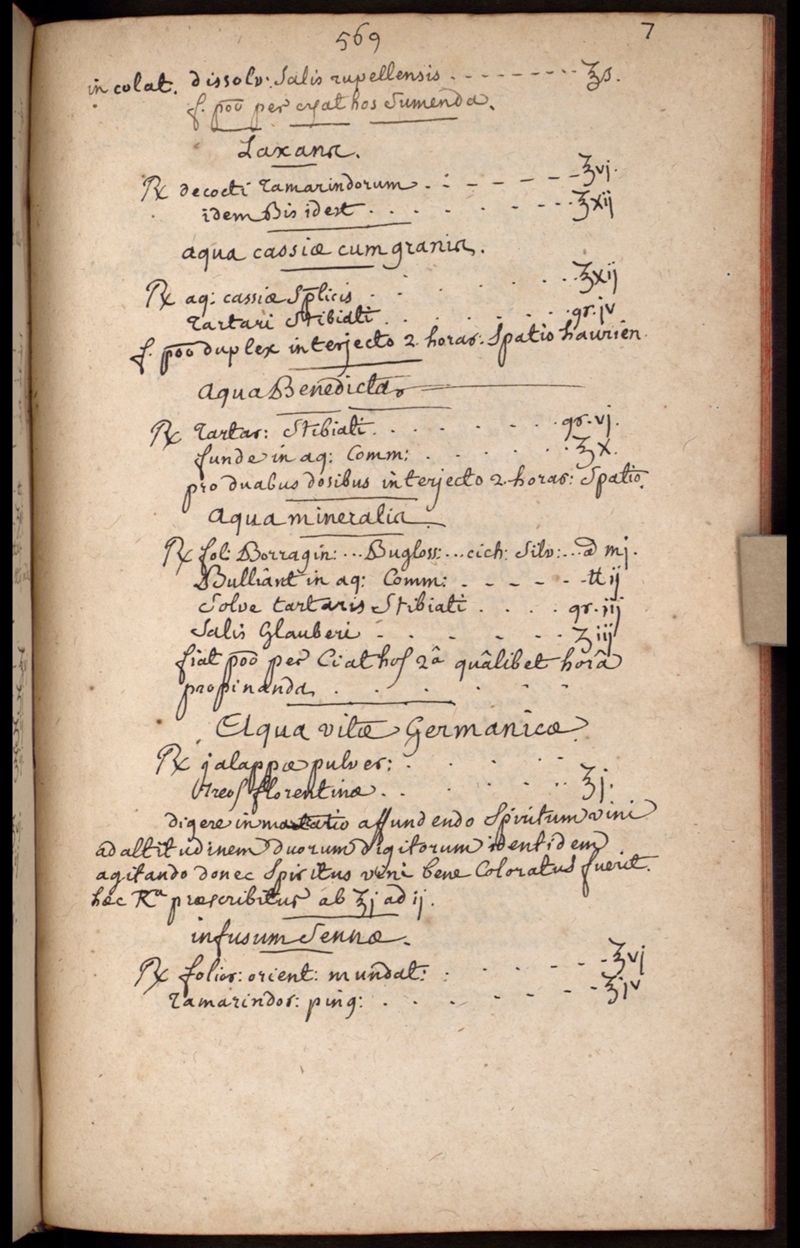 569
7
in colat. dissolv: Salis rupellensis . - - - - - - - ℥s.
f. poō per cyathos Sumenda.
Laxans.
℞ decocti Tamarindorum . - - - - - - ℥vj.
idem Bis id est . . . . . - - - ℥xij
aqua cassiæ cum granis.
℞ aq: cassiæ Splicis . . . . . . ℥xij
Tartari Stibiati . . . . . . . gr. jv
f. poō duplex interjecto 2 horas. Spatio haurien.
Aqua Benedicta
℞ Tartar: Stibiati . . . . . . . gr. vj.
funde in aq: Comm: . . . . . . ℥x.
pro duabus dosibus interjecto 2 horas: Spatio.
Aqua mineralis
℞ fol: Borragin: ... Bugloss: ... cich: Silv: ... a mj.
Bulliant in aq: Comm: - - - - - ℔ ij
Solve tartaris Stibiati . . . . gr. iij
Salis Glauberi - - - - - - ʒ iij
fiat poō per Ciathos 2â quâlibet horâ
propinanda . . . . - -
Aqua vitæ Germanicæ
℞ jalappæ pulver: . . . . - -
Ireos florentinæ . . . . . . ℥j.
digere in affundendo Spiritum vini
ad altitudinem duorum digitorum identidem
agitando donec Spiritus vini bene Coloratus fuerit.
hæc Rᵃ præscribitur ab ℥j ad ij.
infusum Sennæ.
℞ folior: orient: mundat: : . . - - ʒvj
Tamarindor: ping: . . . . - - - ℥jv